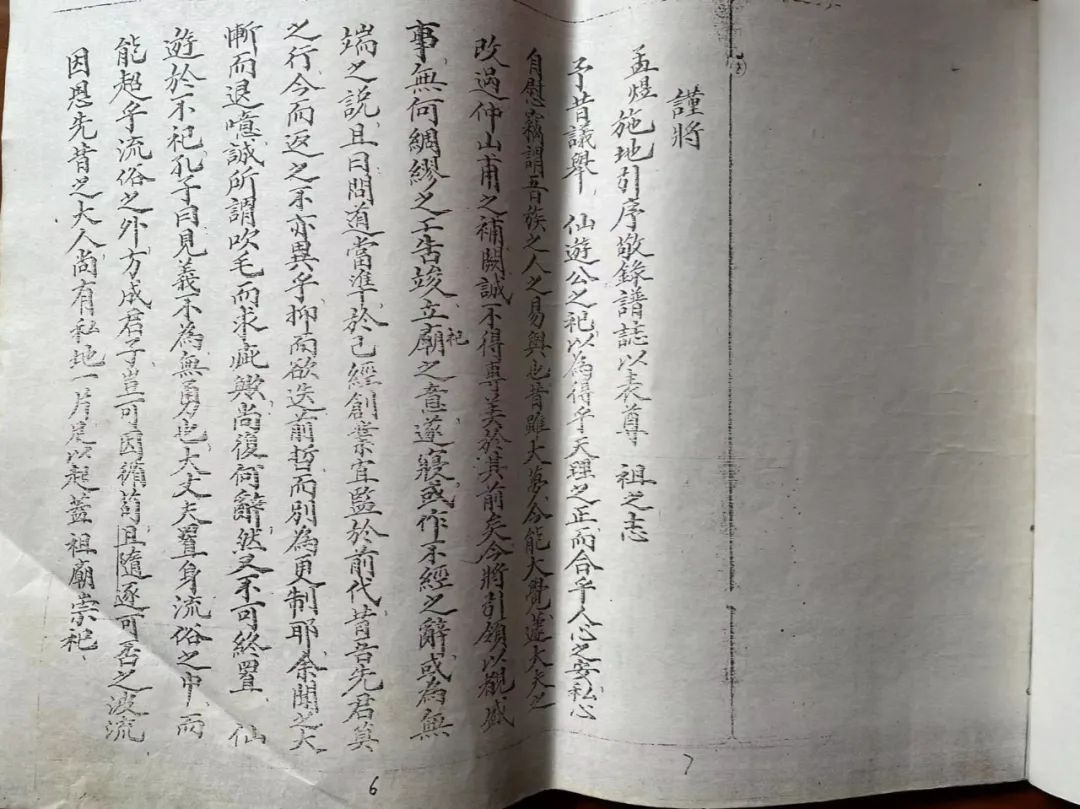 謹將
孟煜施地引序敬錄譜誌以表尊 祖之志
予昔議舉 仙遊公之祀以為得乎天理之正而合乎人心之安私心
自慰竊謂吾族之人之易興也昔雖大夢今能大覺蘧大夫之
改過仲山甫之補闕誠不得專美於其前矣今將引領以觀盛
事無何綢繆之子告竣立廟祀之意遂寢或作不經之辭或為無
端之說且曰問道當準於己經創業宜監於前代昔吾先君莫
之行今而返之不亦異乎抑而欲迭前哲而別為更制耶余聞之大
慚而退噫誠所謂吹毛而求疵歟尚復何辭然又不可終置 仙
遊於不祀孔子曰見義不為無勇也大丈夫置身流俗之中而
能超乎流俗之外方成君子豈可因循苟且隨逐可否之波流
因思先昔之大人尚有私地一片足以起蓋祖廟崇祀
6
7